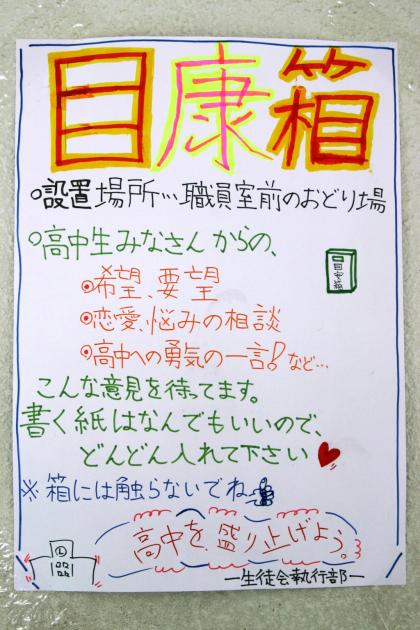 目康箱
○設置場所…職員室前のおどり場
○高中生みなさんからの、
目安箱
◉希望、要望
◉恋愛、悩みの相談
◉高中への勇気の一言!など…
こんな意見を待ってます。
書く紙はなんでもいいので、
どんどん入れて下さい♥
※箱には触らないでね
高中を盛り上げよう。
―生徒会執行部―